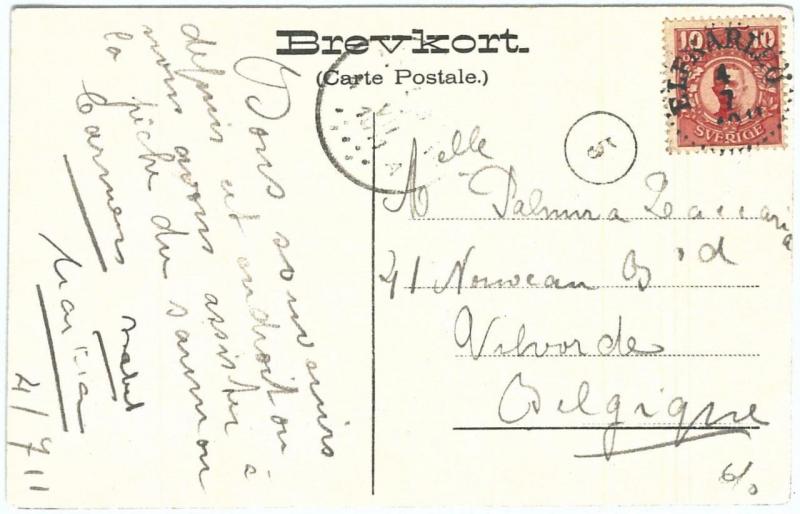 Brevkort.
(Carte Postale.)
Bons souvenirs
depuis cet endroit ou
nous avons assister à
la pêche du saumon
Carmen
Mabel
4/7 11
10 10
SVERIGE
4
7
5
Melle Palmyra Zaccaria
41 Nouveau Bd
Vilvorde
Belgique